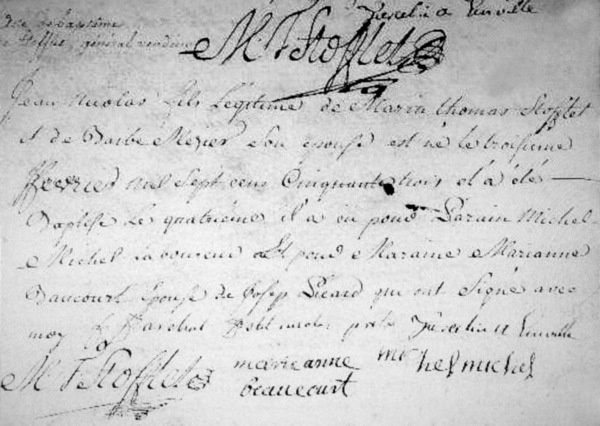 Acte de baptême
de Stofflet, général vendéen
Lunéville
M T Stofflet
Jean Nicolas fils Legitime de Marin thomas Stofflet
et de Barbe Mezier son épouse est né le troisieme
ffevrier mil sept cens Cinquante trois et a été
Baptisé Le quatriéme il a eu pour Parain Michel
Michel laboureur Et pour Maraine Marianne
Baucourt Epouse de Josep Picard qui ont Signé avec
moy
M T Stofflet
marianne michel michel
beaucourt